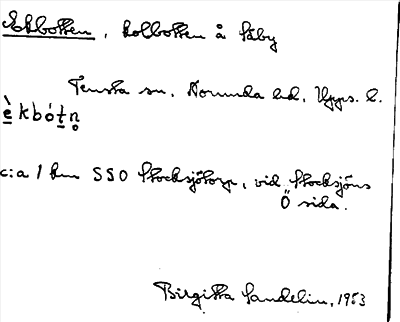 Ekbotten, kolbotten å Säby
Tensta sn, Norunda hd, Upps. l.
è̱kbót̲n̥
c:a 1 km SSO Stocksjötorp, vid Stocksjöns
Ö sida.
Birgitta Sandelin, 1953